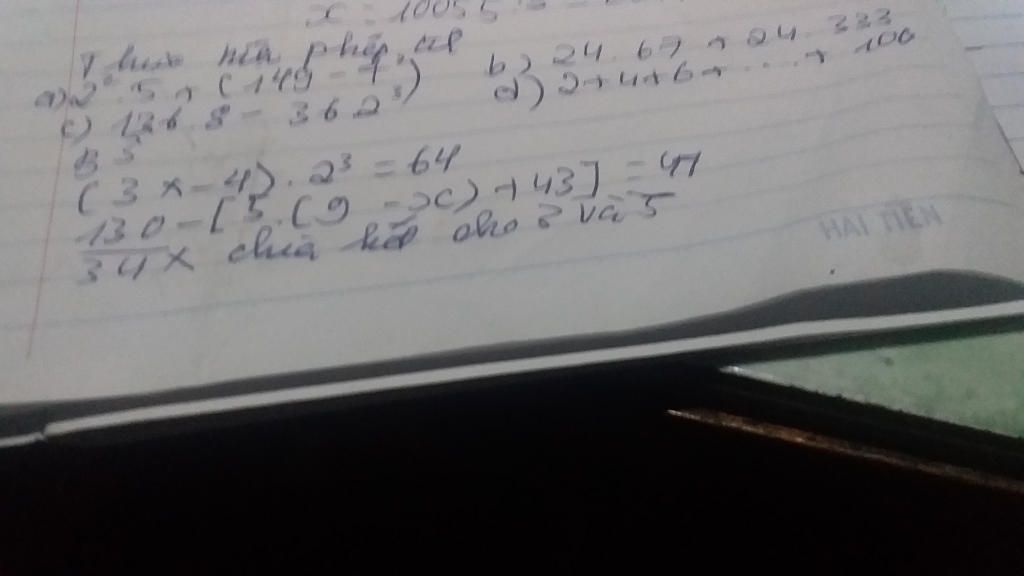 x = 10055
Thực hiện phép
a) 2 . 5 + (149 - 7)
b) 24 . 67 + 24 . 333
c) 136.8 - 36 2³
d) 2 + 4 + 6 + ..... + 100
B 3
(3x - 4) . 2³ = 64
130 - [5.(9 - x) + 43] = 47
34x chia hết cho 3 và 5
HẢI TIẾN